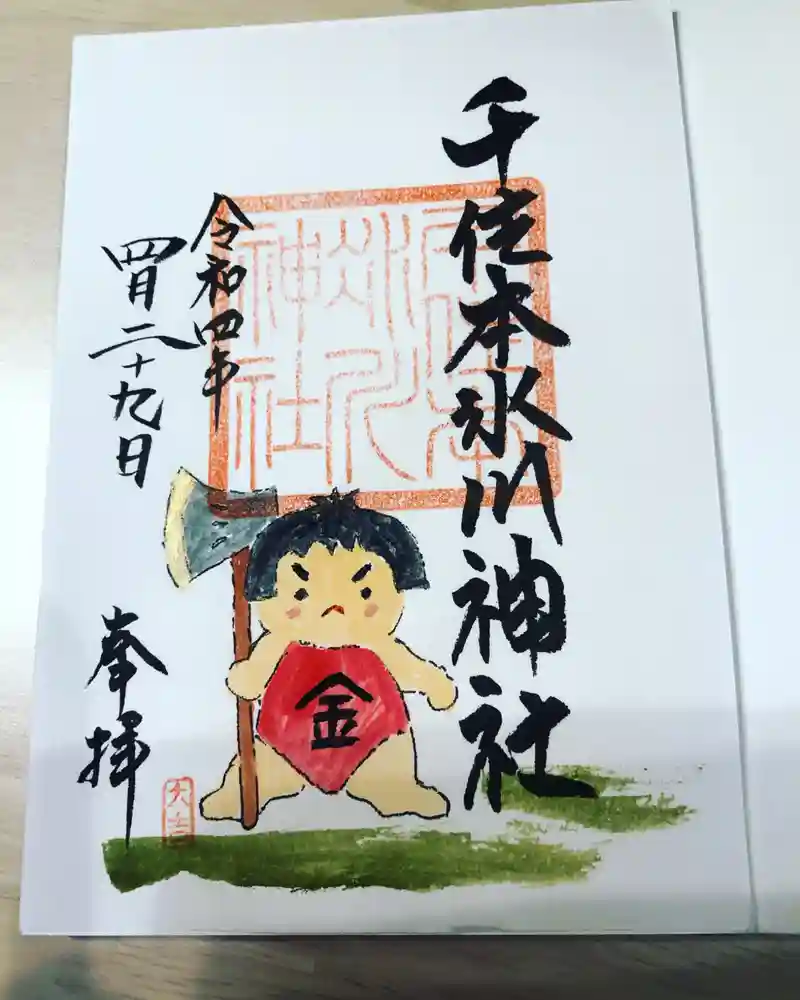 千住本氷川神社
令和四年
四月二十九日
奉拝
金
大吉